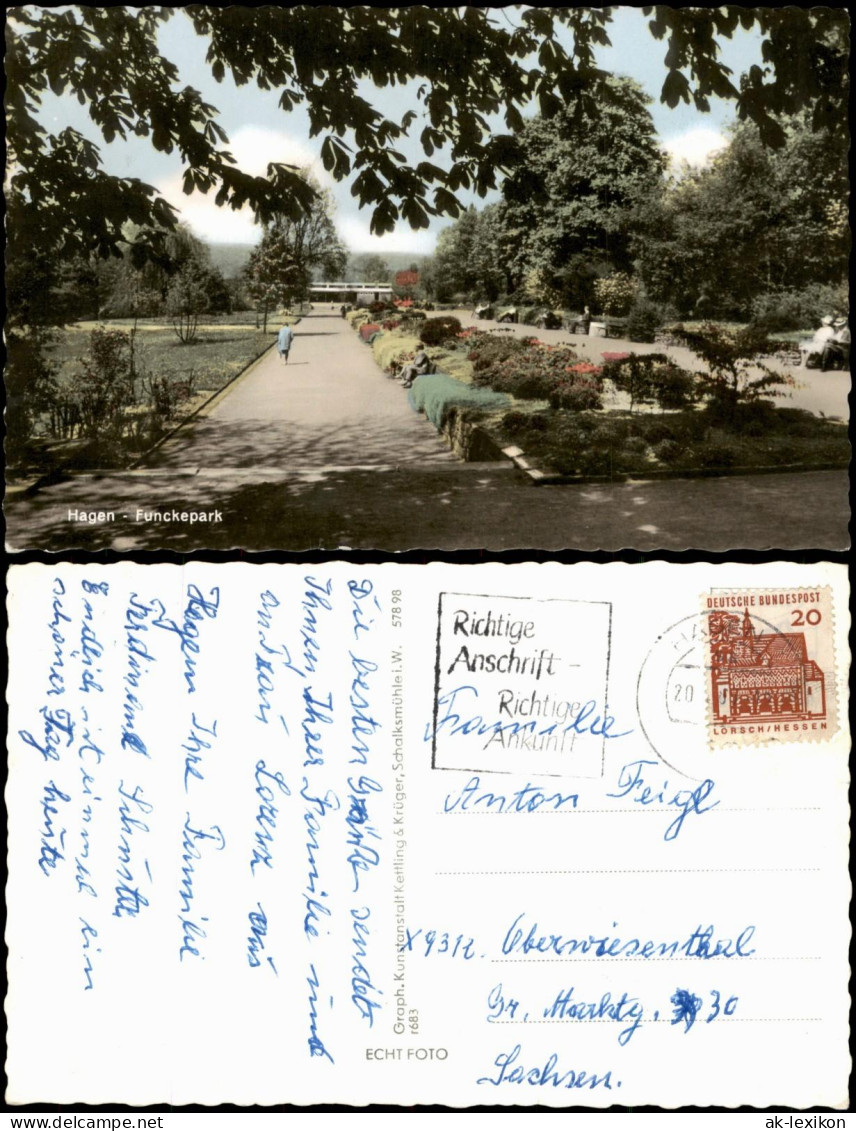 Hagen - Funckepark
Die besten Grüße sendet
Ihnen, Ihrer Familie und
an Frau Lorenz aus
Hagem Ihre Familie
Ferdinand Schuster
Endlich ist einmal ein
schöner Tag heute
Graph. Kunstanstalt Kettling & Krüger, Schalksmühle i. W. 578 98
r683
ECHT FOTO
Richtige
Anschrift -
Richtige
Ankunft
HAGEN
20
DEUTSCHE BUNDESPOST
20
LORSCH/HESSEN
Familie
Anton Feigl
X 9312. Oberwiesenthal
Gr. Marktg. 30
Sachsen.
Hagen - Funckepark
ak-lexikon